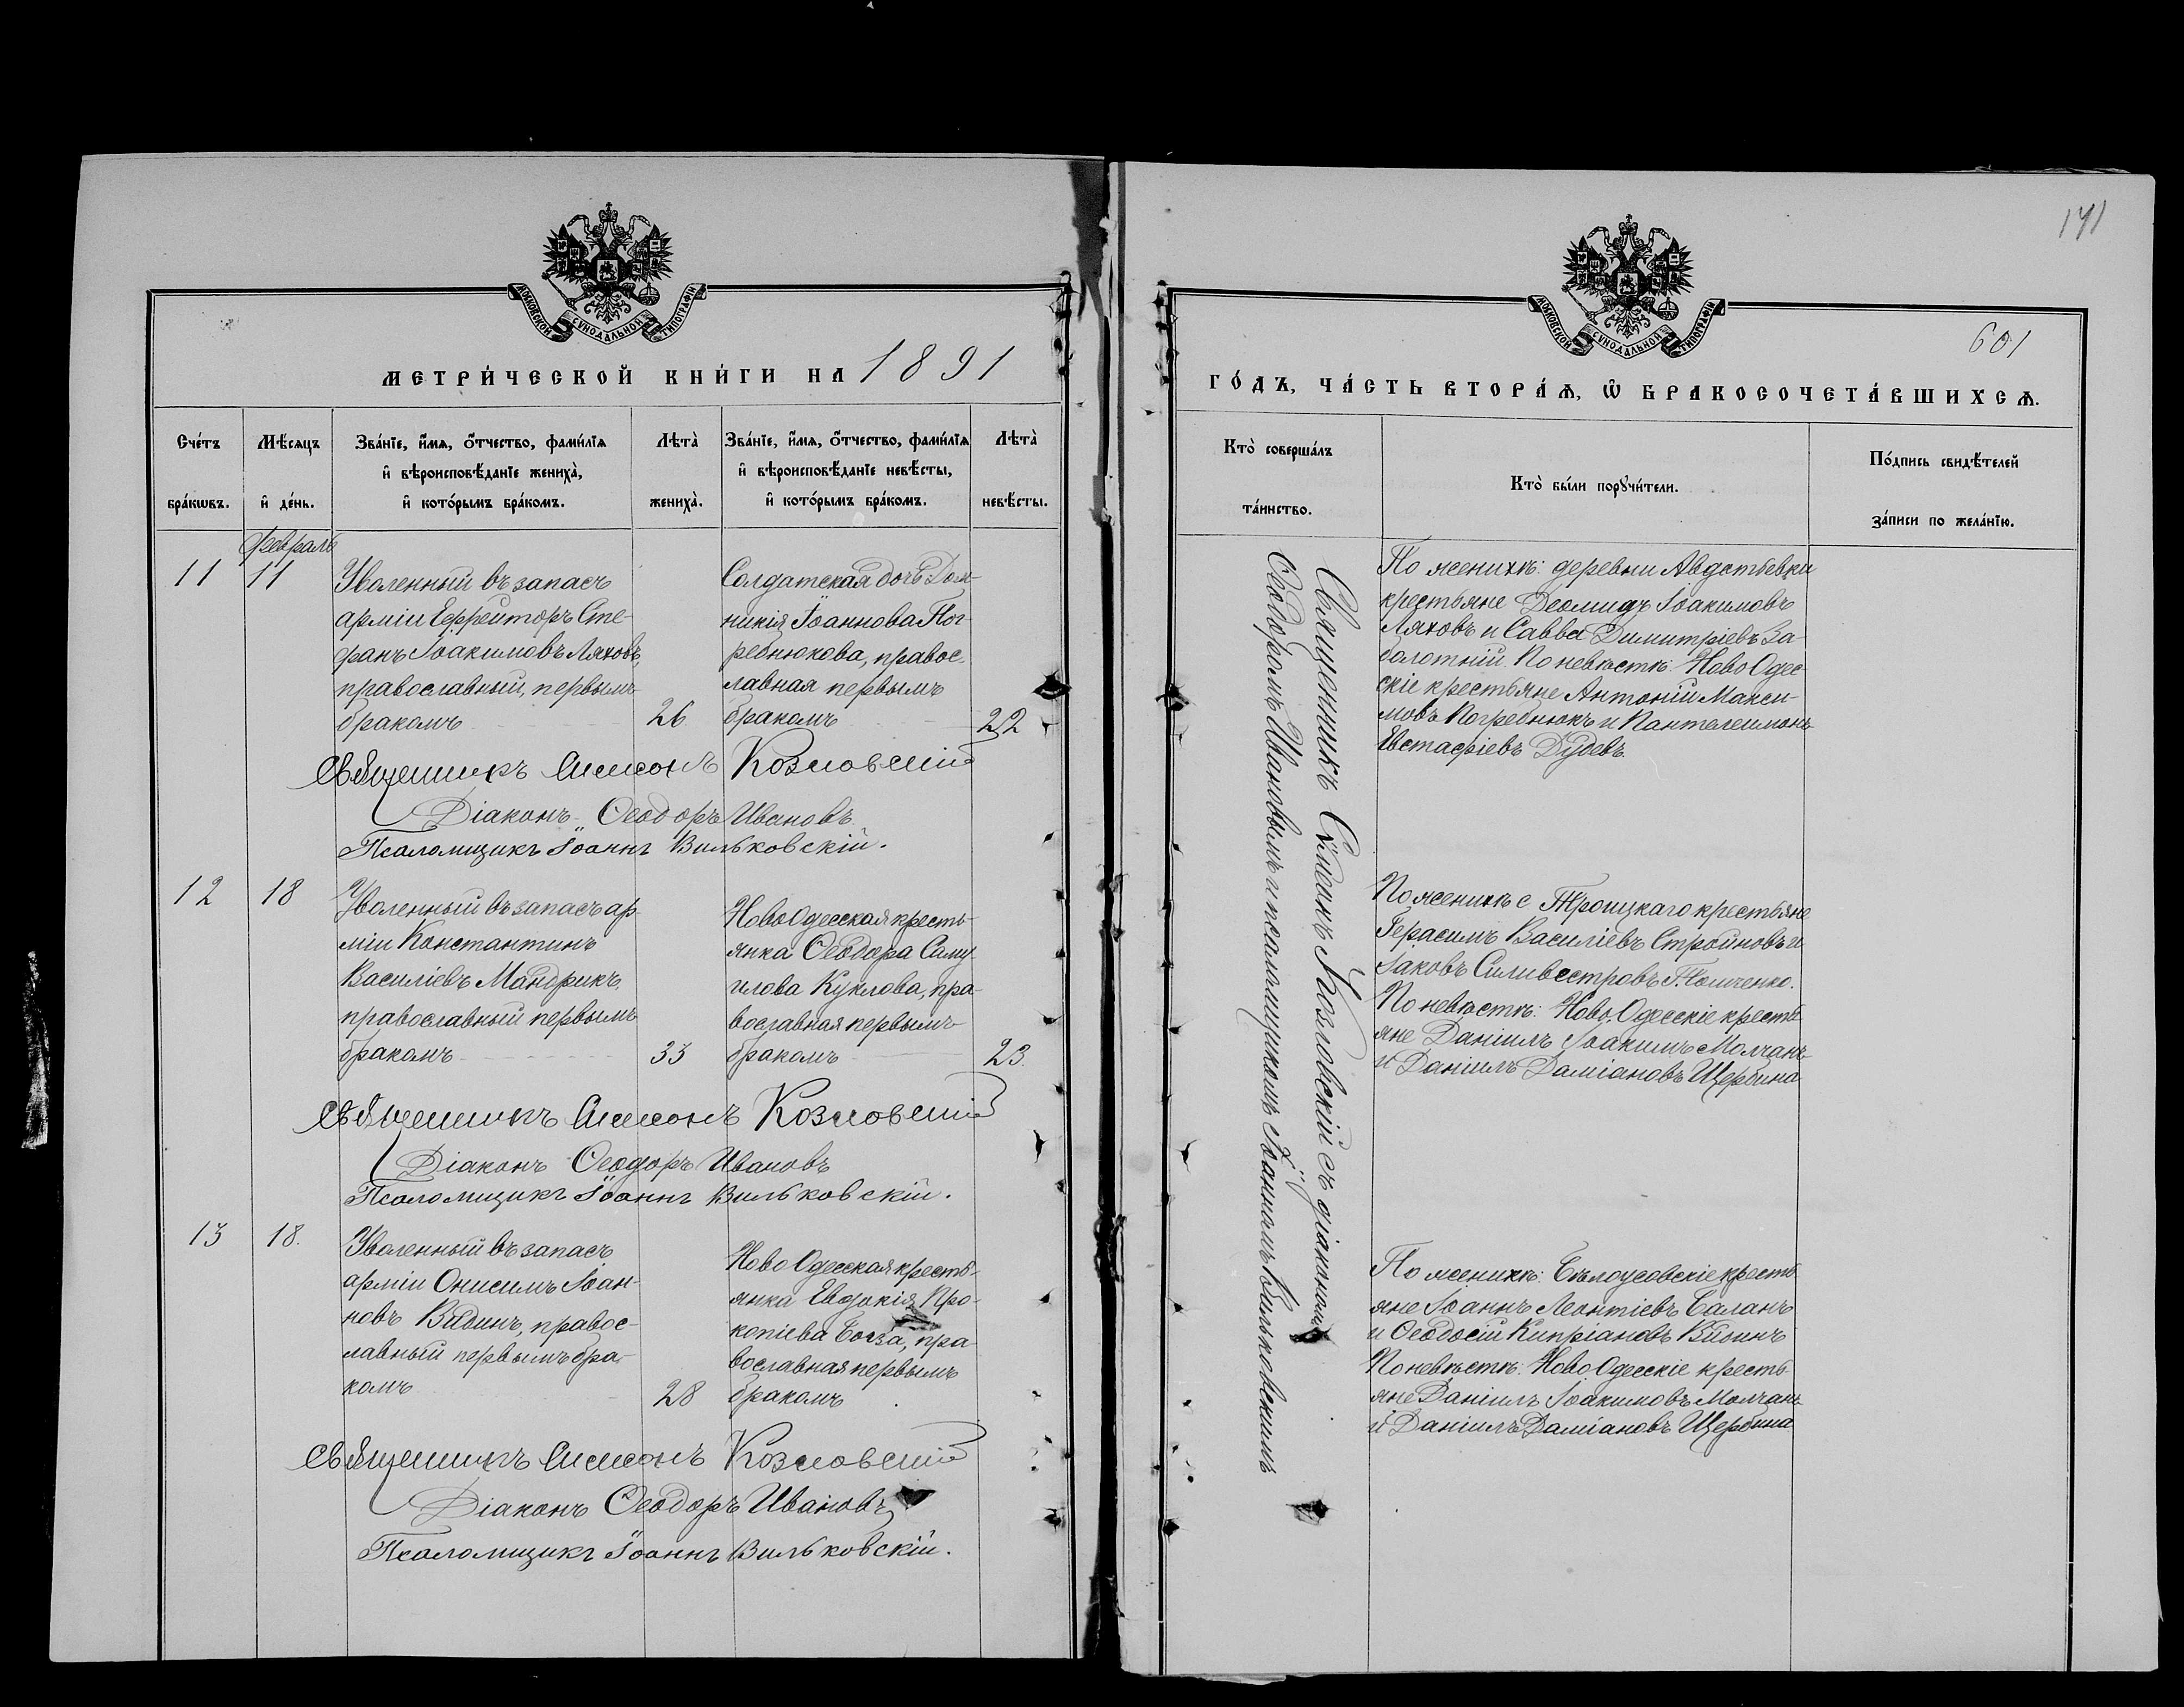 141
МОСКОВСКОЙ СѴНОДАЛЬНОЙ ТИПОГРАФІИ
МЕТРИ́ЧЕСКОЙ КНИ́ГИ НА 1891
Сче́тъ бра́кωвъ.
Мѣ́сяцъ и҆ де́нь.
Зва́нїе, и҆́мѧ, ѻ҆́тчество, фами́лїѧ
и҆ вѣроисповѣ́данїе жениха̀,
и҆ кото́рымъ бра́комъ.
Лѣта̀ жениха̀.
Зва́нїе, и҆́мѧ, ѻ҆́тчество, фами́лїѧ
и҆ вѣроисповѣ́данїе невѣ́сты,
и҆ кото́рымъ бра́комъ.
Лѣта̀ невѣ́сты.
Февраль
11 11
Уволенный въ запасъ
арміи Ефрейторъ Сте-
фанъ Іоакимовъ Ляховъ,
православный, первымъ
бракомъ 26
Солдатская дочь Дом-
никія Іоаннова Пог-
ребнюкова, правос-
лавная первымъ
бракомъ 22
Священникъ Симеонъ Козловскій
Діаконъ Ѳеодоръ Ивановъ
Псаломщикъ Іоаннъ Вильковскій.
12 18
Уволенный въ запасъ ар
міи Константинъ
Василіевъ Мандрикъ,
православный первымъ
бракомъ 33
Ново Одесская кресть-
янка Ѳеодора Саму
илова Куклова, пра-
вославная первымъ
бракомъ 23.
Священникъ Симеонъ Козловскій
Діаконъ Ѳеодоръ Ивановъ
Псаломщикъ Іоаннъ Вильковскій.
13 18.
Уволенный въ запасъ
арміи Онисимъ Іоан-
новъ правос-
лавный первымъ бра-
комъ 28
Ново Одесская кресть-
янка Евдокія Про-
копіева пра
вославная первымъ
бракомъ
Священникъ Симеонъ Козловскій
Діаконъ Ѳеодоръ Ивановъ
Псаломщикъ Іоаннъ Вильковскій.
МОСКОВСКОЙ СѴНОДАЛЬНОЙ ТИПОГРАФІИ
601
ГО́ДЪ, ЧА́СТЬ ВТОРА́Ѧ, Ѡ҆ БРАКОСОЧЕТА́ВШИХСѦ.
Кто̀ соверша́лъ та́инство.
Кто̀ бы́ли порꙋчи́тели.
По́дпись свидѣ́телей
за́писи по жела́нїю.
Священникъ Симеонъ Козловскій съ діакономъ
Ѳеодоромъ Ивановымъ и псаломщикомъ Іоанномъ Вильковскимъ
По женихѣ: деревни Авдотьевки
крестьяне Деомидъ Іоакимовъ
Ляховъ и Савва Димитріевъ За-
болотній. По невѣстѣ: Ново Одес
скіе крестьяне Антоній Макси-
мовъ Погребнюкъ и Пантелеимонъ
Евстафіевъ Дудевъ.
По женихѣ с Троицкаго крестьяне
Герасимъ Василіевъ Стройновъ и
Іаковъ Силивестровъ
По невѣстѣ: Ново Одесскіе кресть
яне Даніилъ Іоакимъ Молчанъ
и Даніилъ Даміановъ Щербина
По женихѣ: Бѣлоусовскіе кресть
яне Іоаннъ Леонтіевъ Баланъ
и Ѳеодосій Кипріановъ
По невѣстѣ: Ново Одесскіе кресть-
яне Даніилъ Іоакимовъ Молчанъ
и Даніилъ Даміановъ Щербина